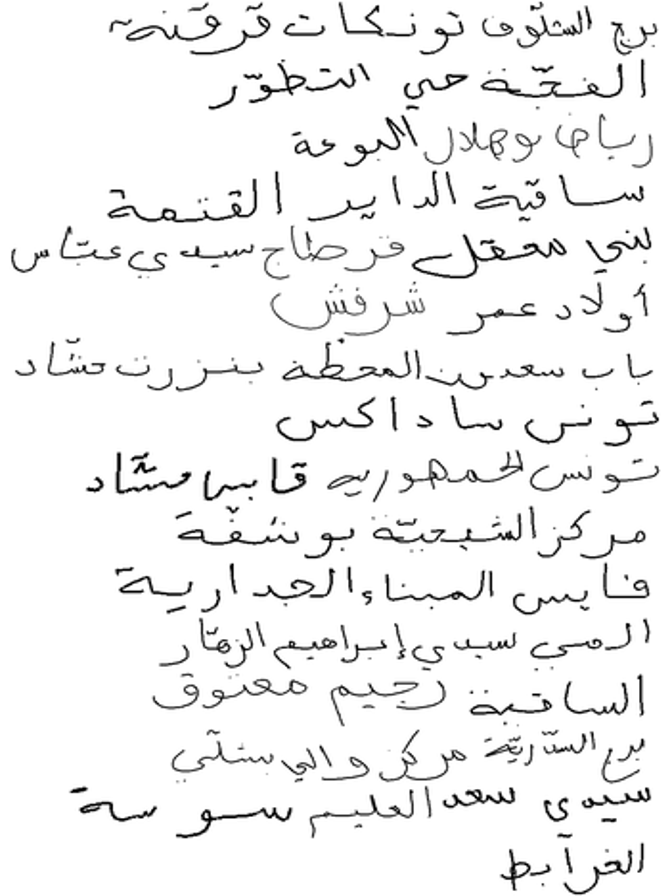 برج الشلّوف تونكات قرقنة
الفجّة حي التطوّر
رياض بوهلال البوعة
ساقية الداير القتمة
بني معقل قرطاج سيدي عبّاس
أولاد عمر شرفش
باب سعدون المحطّة بنزرت حشّاد
تونس ساداكس
تونس الجمهورية قابس حشّاد
مركز الشيحيّة بوشفة
قابس الميناء الجدارية
الرمي سيدي إبراهيم الزهّار
الساقية رجيم معتوق
برج السدّريّة مركز والي
سيدي سعد العليم سوسة
الخرآبط